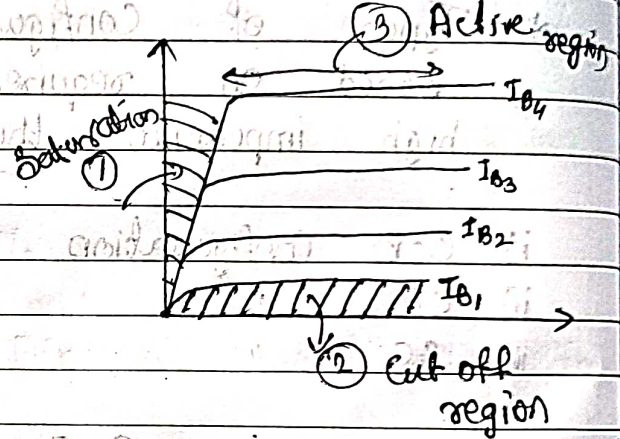 ③ Active region
I_B4
Saturation
①
I_B3
I_B2
I_B1
② Cut off
region